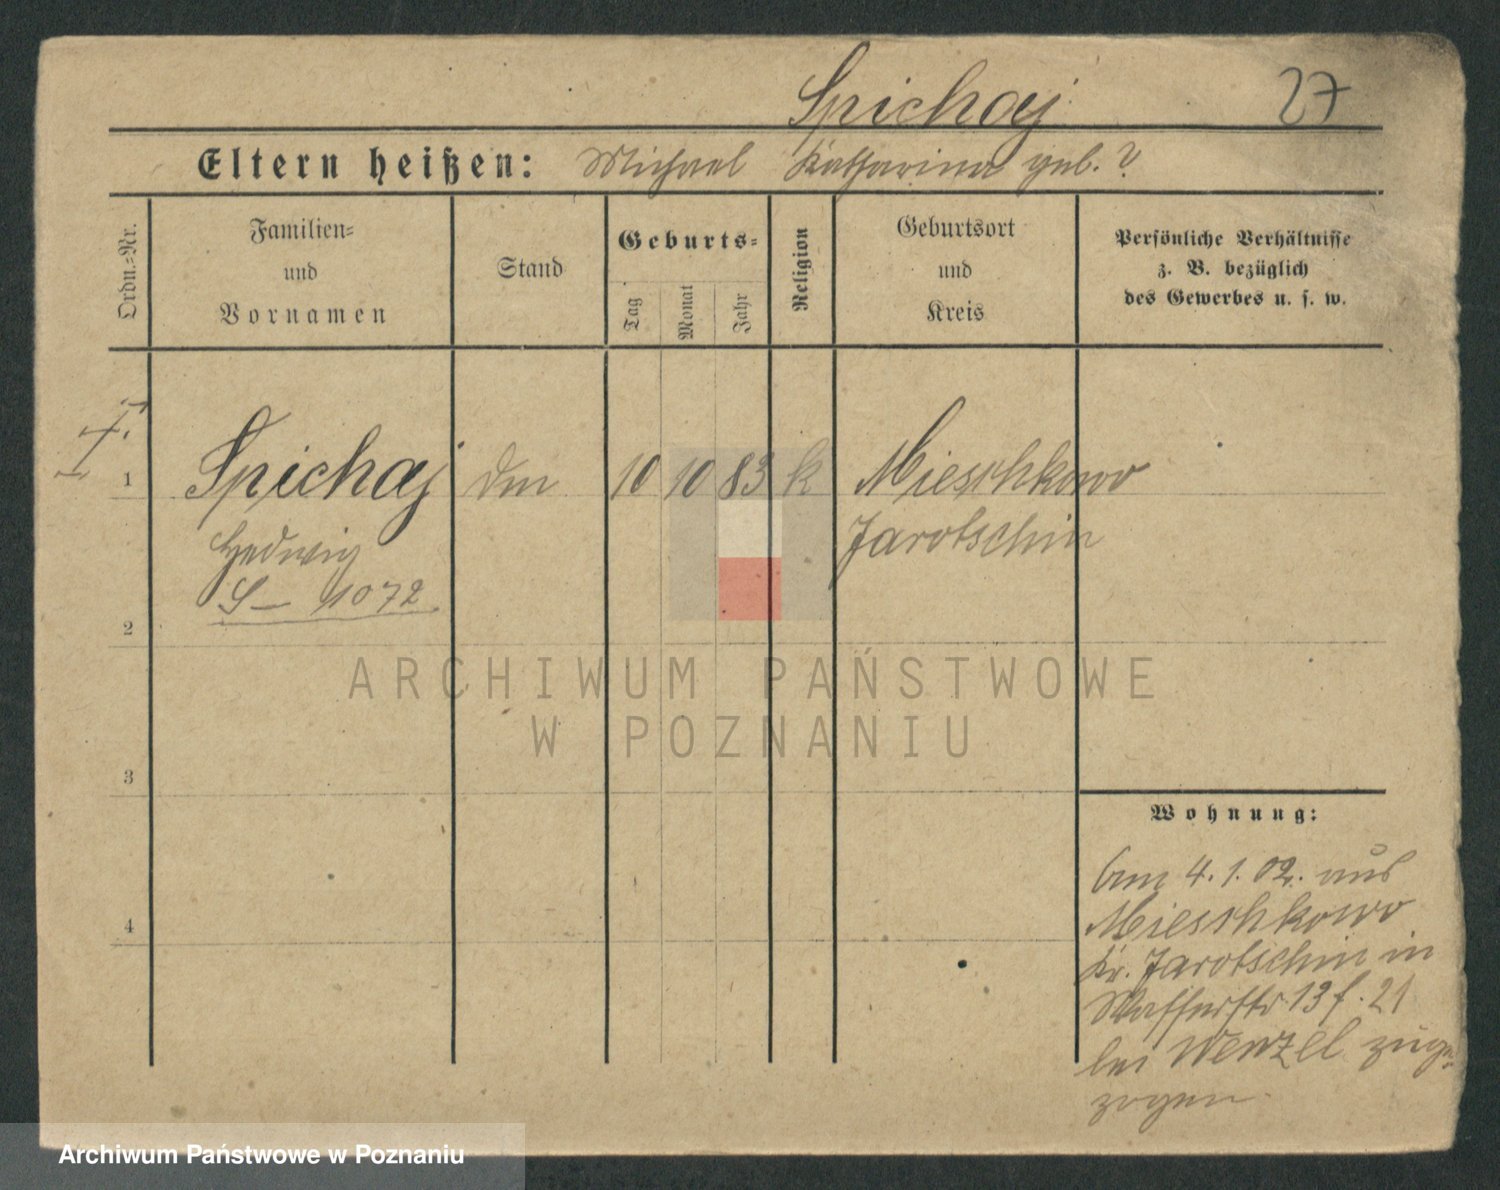 Spichaj 27
Eltern heißen: Michael Katharina geb. ?
Ordn.=Nr.
Familien=
und
Vornamen
Stand
Geburts=
Tag
Monat
Jahr
Religion
Geburtsort
und
Kreis
Persönliche Verhältnisse
z. B. bezüglich
des Gewerbes u. s. w.
1 Spichaj 10 10 83 k Mieschkowo
Hedwig Jarotschin
S— 1072
2
ARCHIWUM PAŃSTWOWE
W POZNANIU
3
4
Wohnung:
Am 4. 1. 02. aus
Mieschkowo
Kr. Jarotschin in
Wasserstr 13 f. 21
bei Wenzel zuge=
zogen.
Archiwum Państwowe w Poznaniu